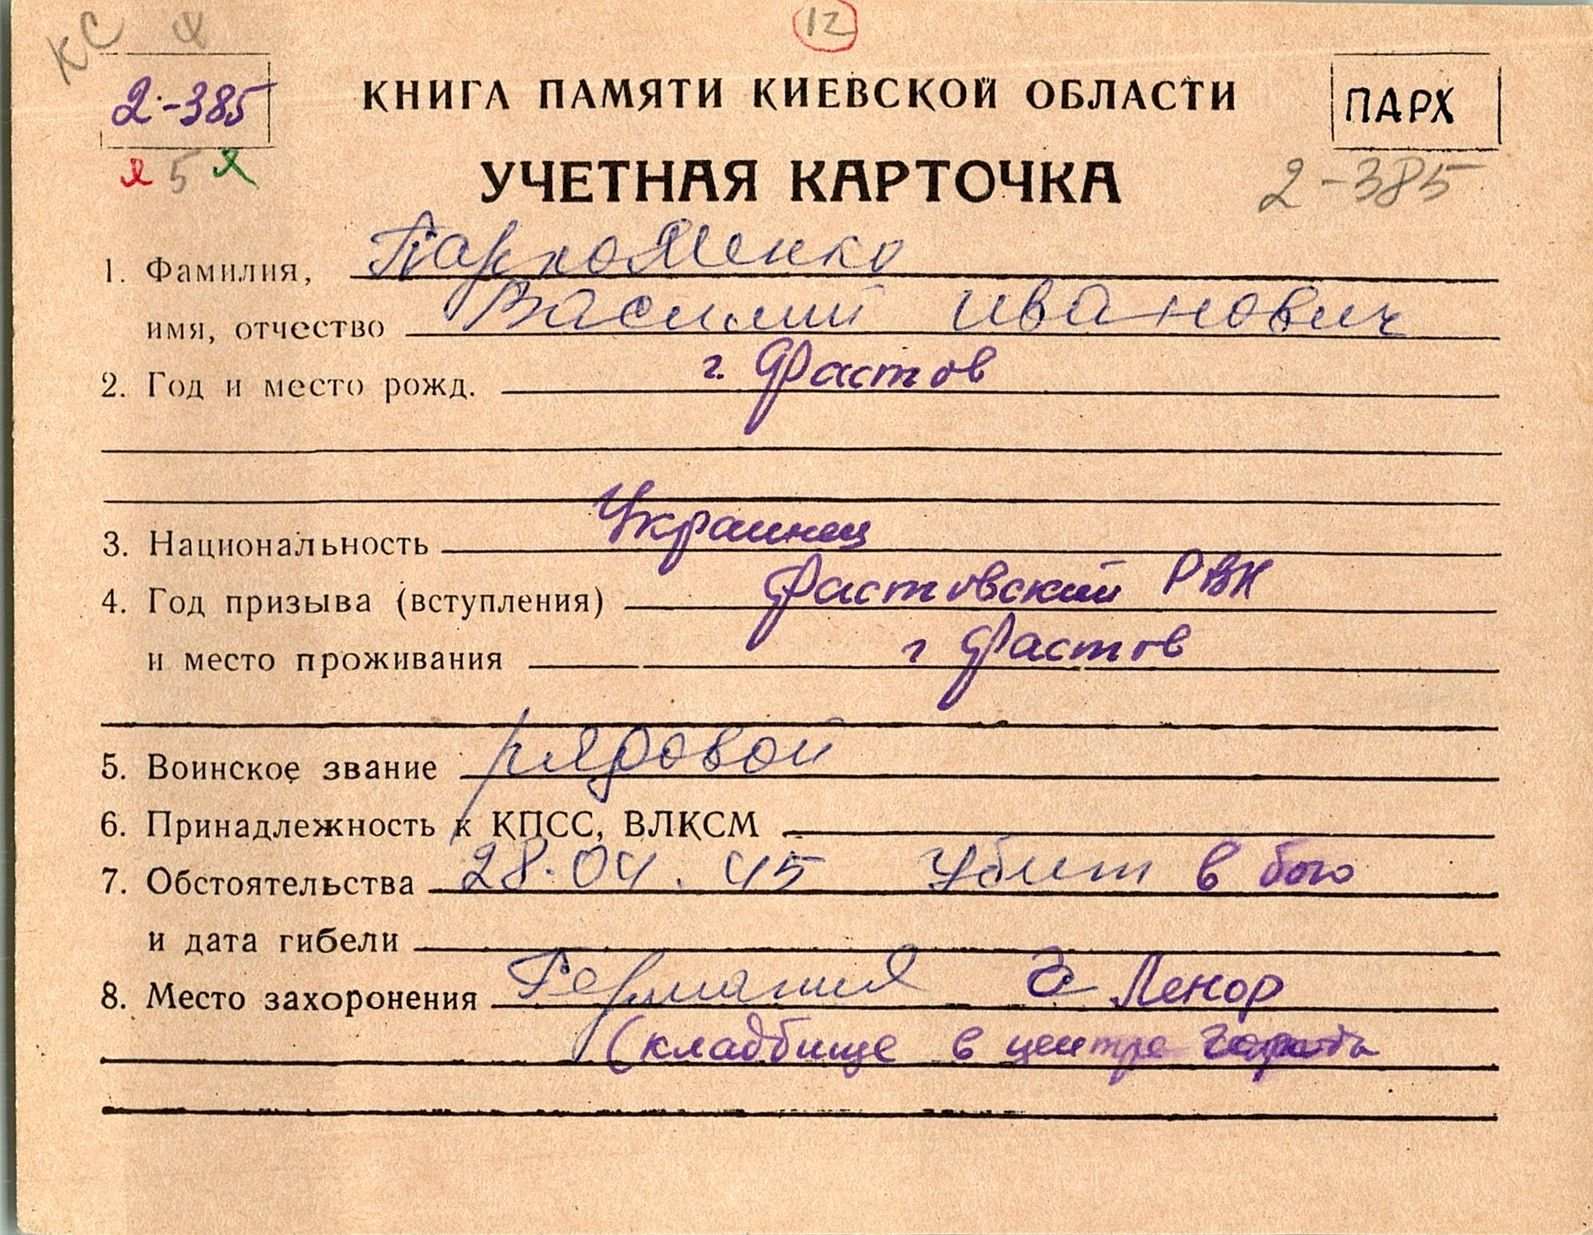 КС Ф
12
2-385
КНИГА ПАМЯТИ КИЕВСКОЙ ОБЛАСТИ
ПАРХ
я 5 я
УЧЕТНАЯ КАРТОЧКА
2-385
1. Фамилия, Пархоменко
имя, отчество Василий Иванович
2. Год и место рожд. г. Фастов
3. Национальность Украинец
4. Год призыва (вступления) Фастовский РВК
и место проживания г Фастов
5. Воинское звание рядовой
6. Принадлежность к КПСС, ВЛКСМ
7. Обстоятельства 28.04.45 Убит в бою
и дата гибели
8. Место захоронения Германия г Ленор
(кладбище в центре города